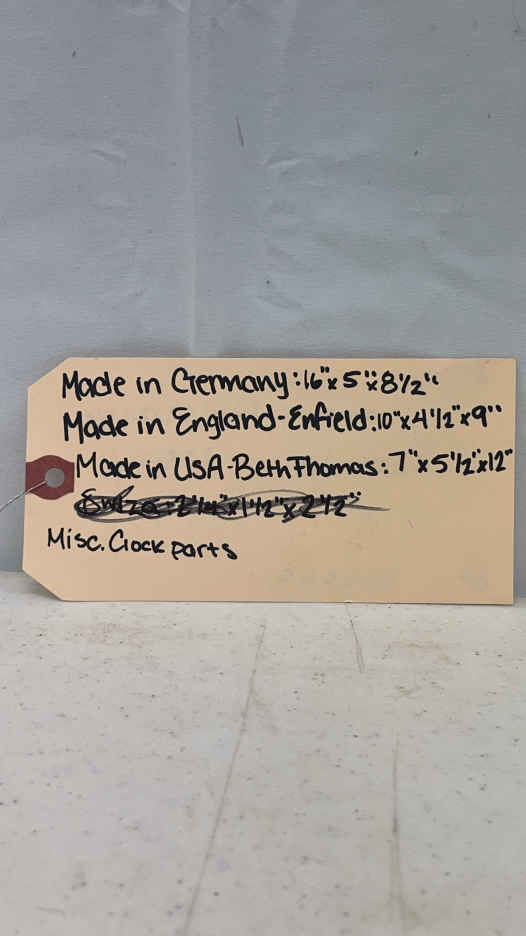 Made in Germany: 16" x 5" x 8 1/2"
Made in England-Enfield: 10" x 4 1/2" x 9"
Made in USA-Beth Thomas: 7" x 5 1/2" x 12"
2 1/4" x 1 1/2" x 2 1/2"
Misc. Clock parts